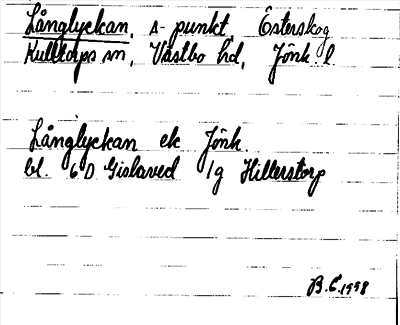 Långlyckan, s-punkt, Esterskog
Kulltorps sn, Västbo hd, Jönk. l.
Långlyckan ek Jönk.
bl. 6 D Gislaved 1g Hillerstorp
B.E. 1998